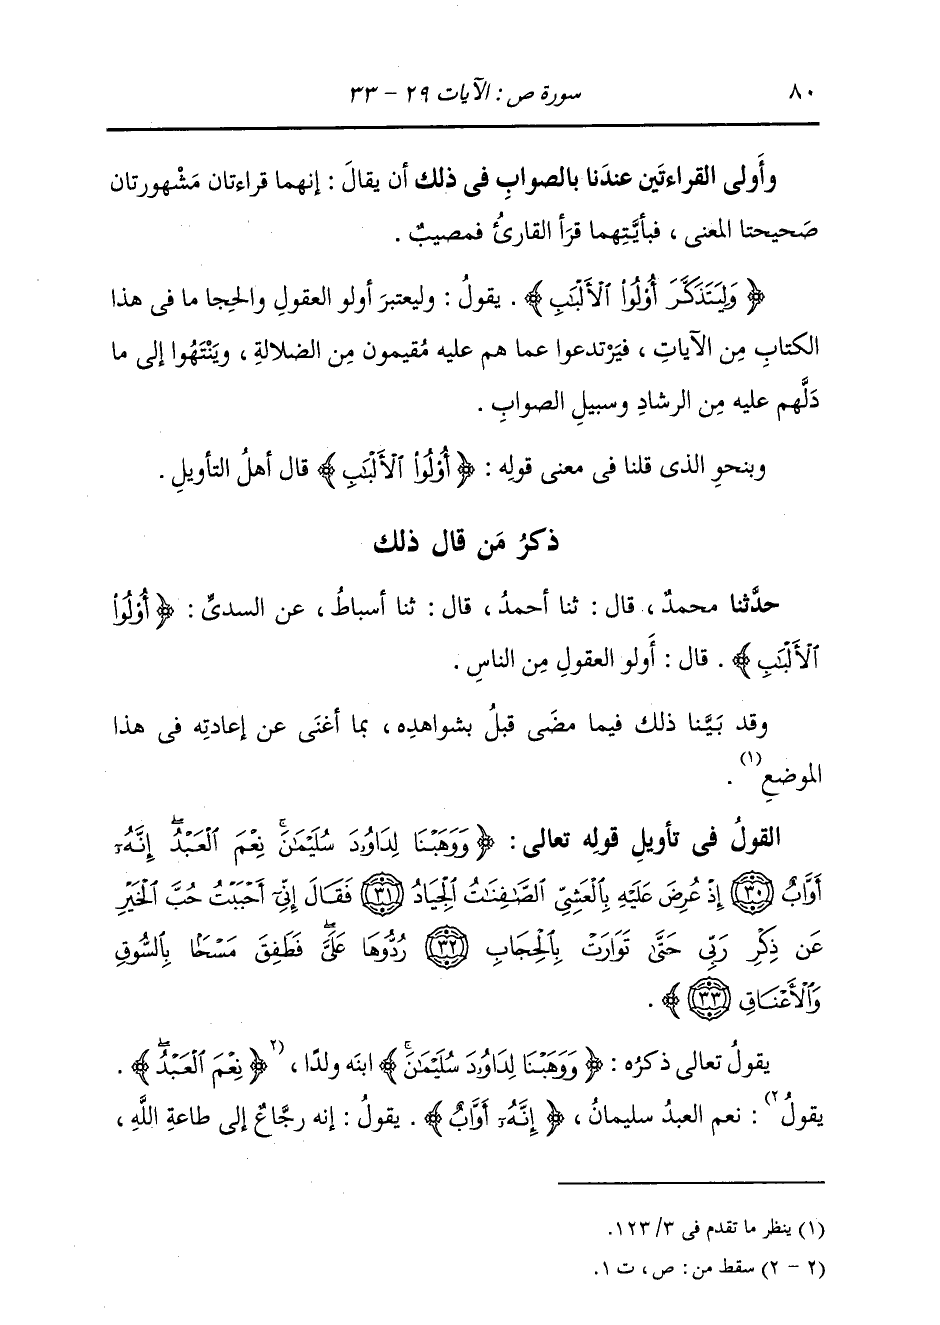 ٨٠ سورة ص : الآيات ٢٩ - ٣٣
وأَولى القراءتَين عندَنا بالصوابِ فى ذلك أن يقالَ : إنهما قراءتان مَشْهورتان
صَحيحتا المعنى ، فبأيَّتِهما قرَأ القارئُ فمصيبٌ .
﴿ وَلِيَتَذَكَّرَ أُوْلُواْ ٱلْأَلْبَٰبِ ﴾ . يقولُ : وليعتبرَ أولو العقولِ والحِجا ما فى هذا
الكتابِ مِن الآياتِ ، فيَرْتدعوا عما هم عليه مُقيمون مِن الضلالةِ ، ويَنْتَهُوا إلى ما
دَلَّهم عليه مِن الرشادِ وسبيلِ الصوابِ .
وبنحوِ الذى قلنا فى معنى قولِه : ﴿ أُوْلُواْ ٱلْأَلْبَٰبِ ﴾ قال أهلُ التأويلِ .
ذكرُ مَن قال ذلك
حدَّثنا محمدٌ ، قال : ثنا أحمدُ ، قال : ثنا أسباطُ ، عن السدىِّ : ﴿ أُوْلُواْ
ٱلْأَلْبَٰبِ ﴾ . قال : أَولو العقولِ مِن الناسِ .
وقد بَيَّنا ذلك فيما مضَى قبلُ بشواهدِه ، بما أغنَى عن إعادتِه فى هذا
الموضعِ(١) .
القولُ فى تأويلِ قولِه تعالى : ﴿ وَوَهَبْنَا لِدَاوُۥدَ سُلَيْمَٰنَۚ نِعْمَ ٱلْعَبْدُۖ إِنَّهُۥٓ
أَوَّابٌ ٣٠ إِذْ عُرِضَ عَلَيْهِ بِٱلْعَشِىِّ ٱلصَّٰفِنَٰتُ ٱلْجِيَادُ ٣١ فَقَالَ إِنِّىٓ أَحْبَبْتُ حُبَّ ٱلْخَيْرِ
عَن ذِكْرِ رَبِّى حَتَّىٰ تَوَارَتْ بِٱلْحِجَابِ ٣٢ رُدُّوهَا عَلَىَّۖ فَطَفِقَ مَسْحًۢا بِٱلسُّوقِ
وَٱلْأَعْنَاقِ ٣٣ ﴾ .
يقولُ تعالى ذكرُه : ﴿ وَوَهَبْنَا لِدَاوُۥدَ سُلَيْمَٰنَۚ ﴾ ابنَه ولدًا ، (٢﴿ نِعْمَ ٱلْعَبْدُۖ ﴾ .
يقولُ٢) : نعم العبدُ سليمانُ ، ﴿ إِنَّهُۥٓ أَوَّابٌ ﴾ . يقولُ : إنه رجَّاعٌ إلى طاعةِ اللَّهِ ،
(١) ينظر ما تقدم فى ٣/ ١٢٣.
(٢ - ٢) سقط من : ص ، ت ١.